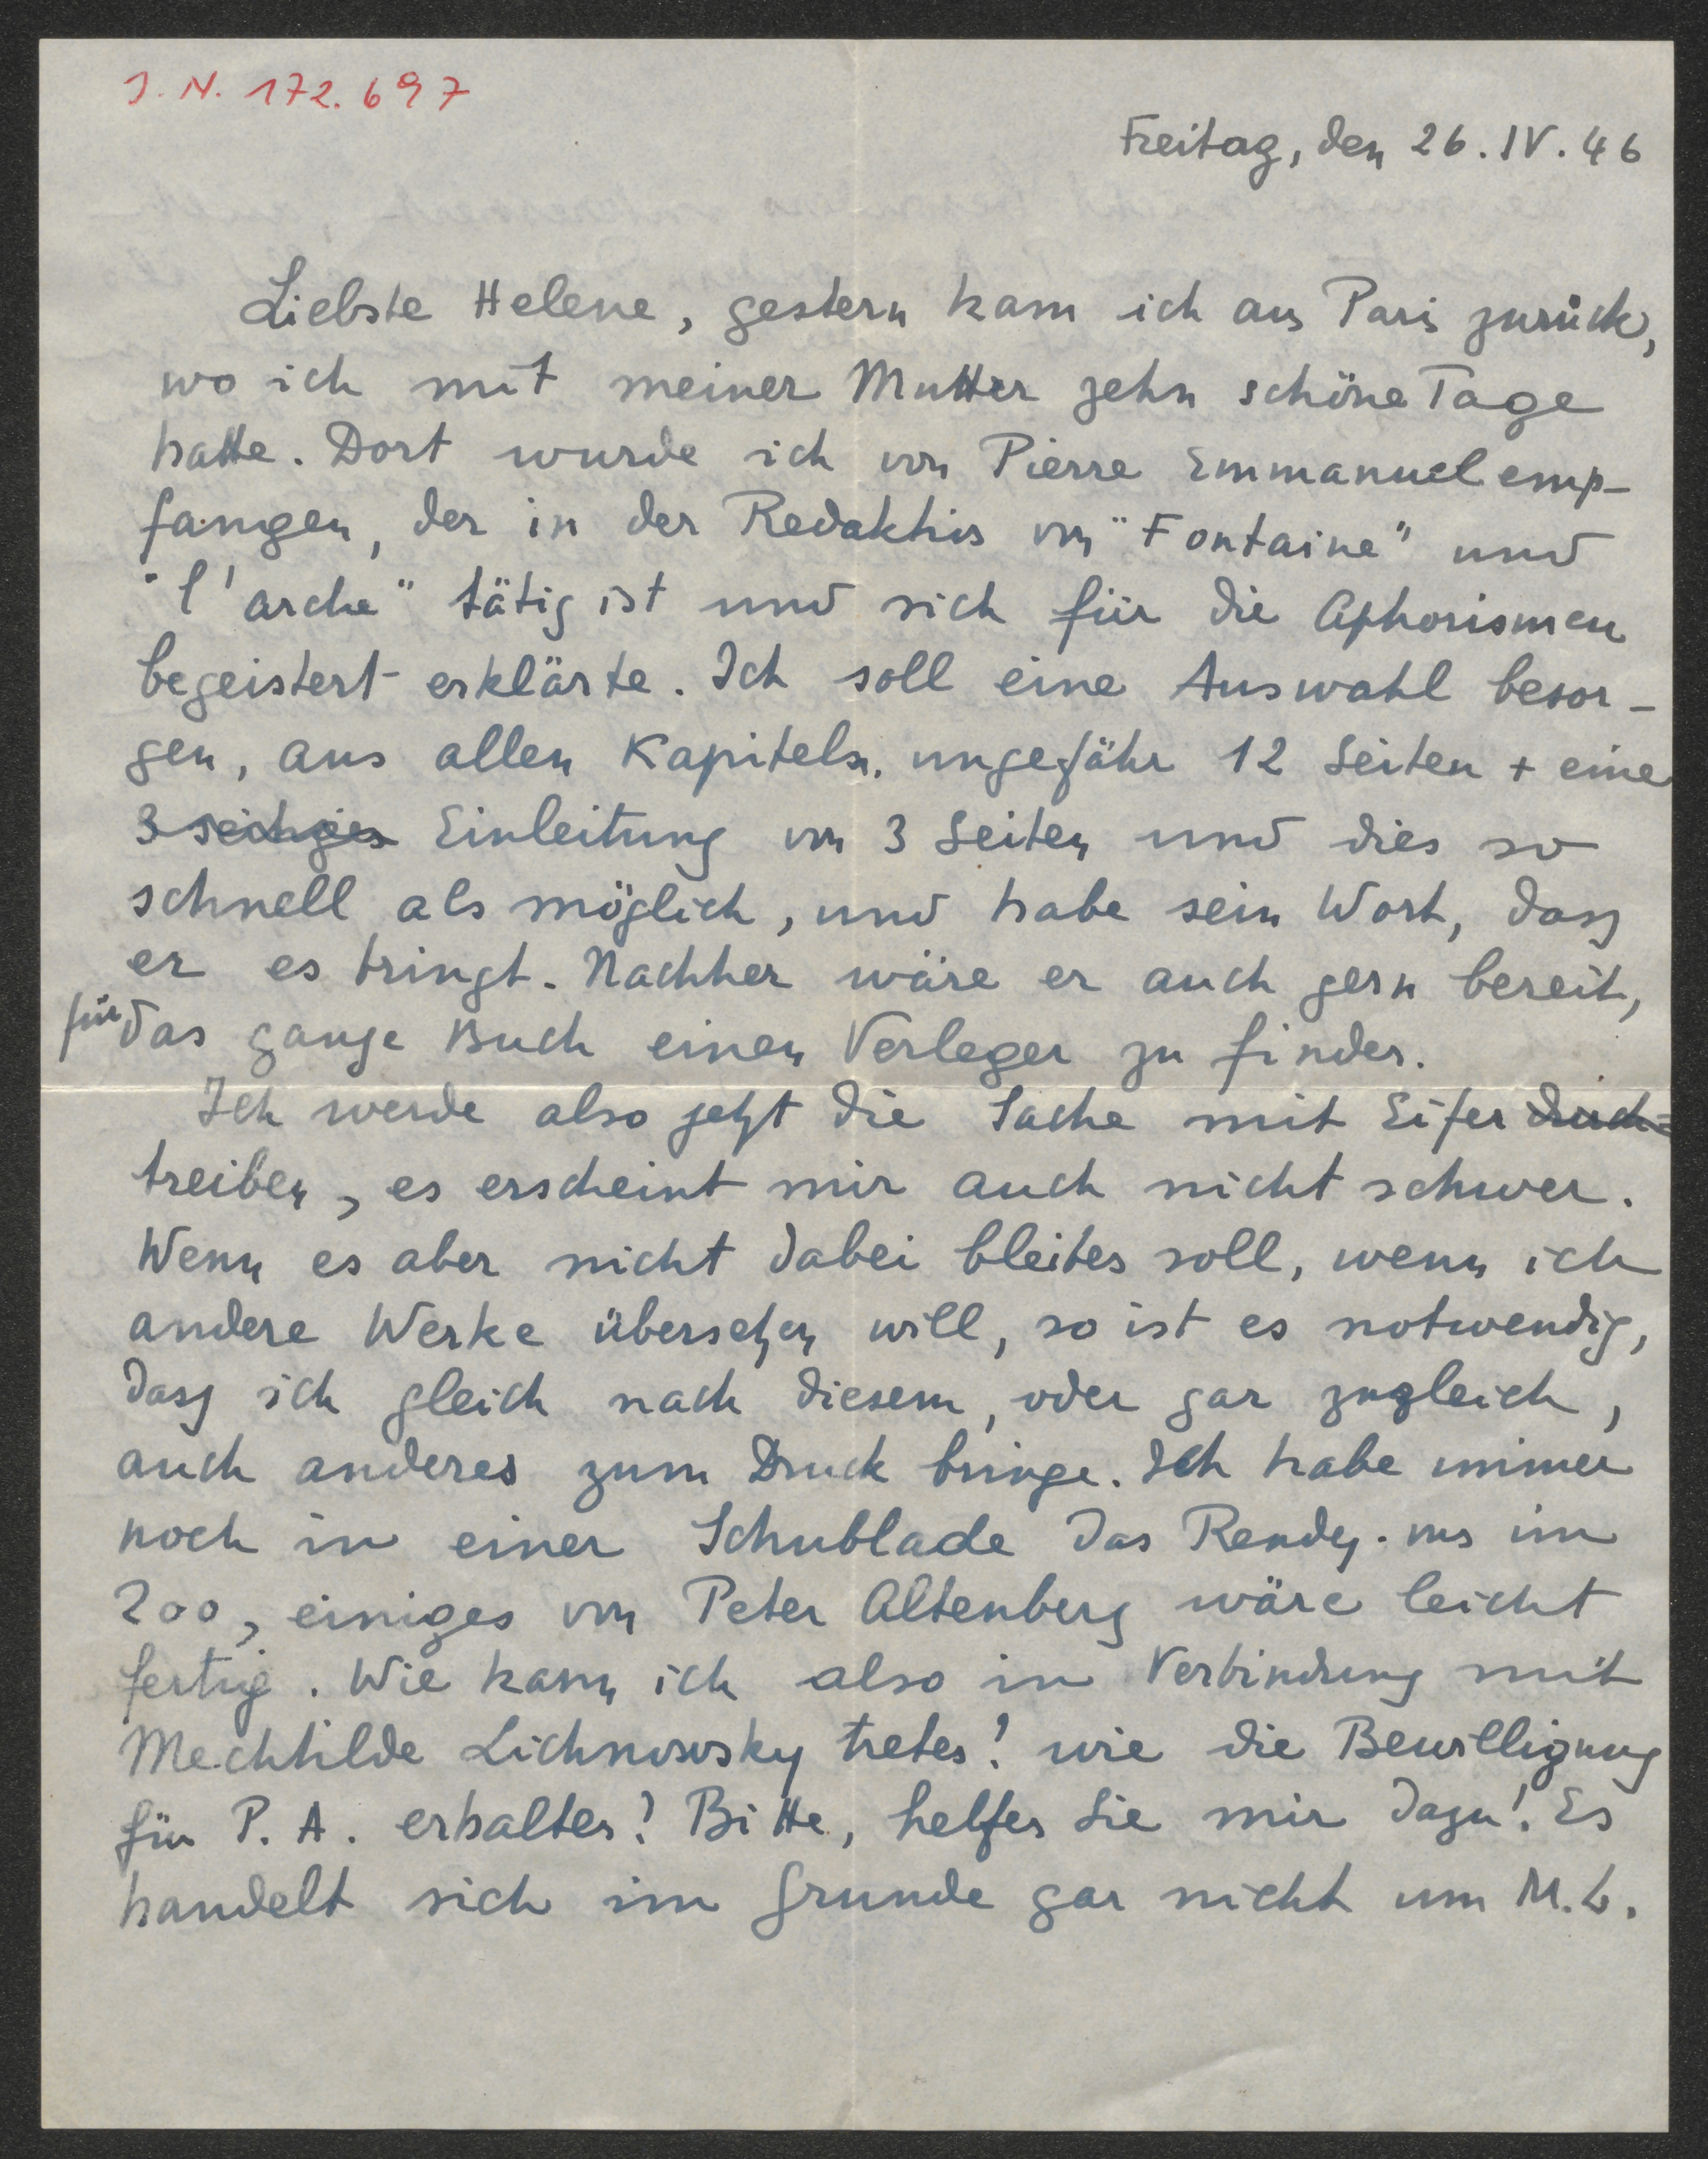 J. N. 172.697
Freitag, den 26. IV. 46
Liebste Helene, gestern kam ich aus Paris zurück,
wo ich mit meiner Mutter zehn schöne Tage
hatte. Dort wurde ich von Pierre Emmanuel emp-
fangen, der in der Redaktion von "Fontaine" und
"l'arche" tätig ist und sich für die Aphorismen
begeistert erklärte. Ich soll eine Auswahl besor-
gen, aus allen Kapiteln, ungefähr 12 Seiten + eine
3 seitiges Einleitung von 3 Seiten und dies so
schnell als möglich, und habe sein Wort, dass
er es bringt. Nachher wäre er auch gern bereit,
für das ganze Buch einen Verleger zu finden.
Ich werde also jetzt die Sache mit Eifer durch-
treiben, es erscheint mir auch nicht schwer.
Wenn es aber nicht dabei bleiben soll, wenn ich
andere Werke übersetzen will, so ist es notwendig,
dass ich gleich nach diesem, oder gar zugleich,
auch anderes zum Druck bringe. Ich habe immer
noch in einer Schublade das Rendez-vous im
Zoo, einiges von Peter Altenberg wäre leicht
fertig. Wie kann ich also in Verbindung mit
Mechtilde Lichnowsky treten? wie die Bewilligung
für P. A. erhalten? Bitte, helfen Sie mir dazu! Es
handelt sich im Grunde gar nicht um M. L.